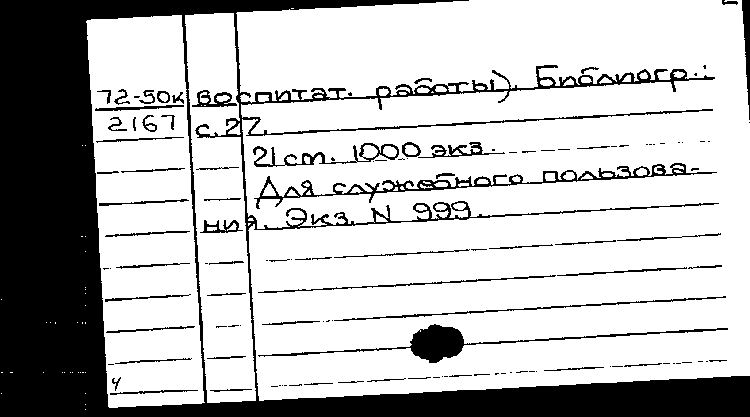 72-50к воспитат. работы). Библиогр.:
2167 с. 27.
21 cm. 1000 экз.
Для служебного пользова-
ния. Экз. N 999.
4